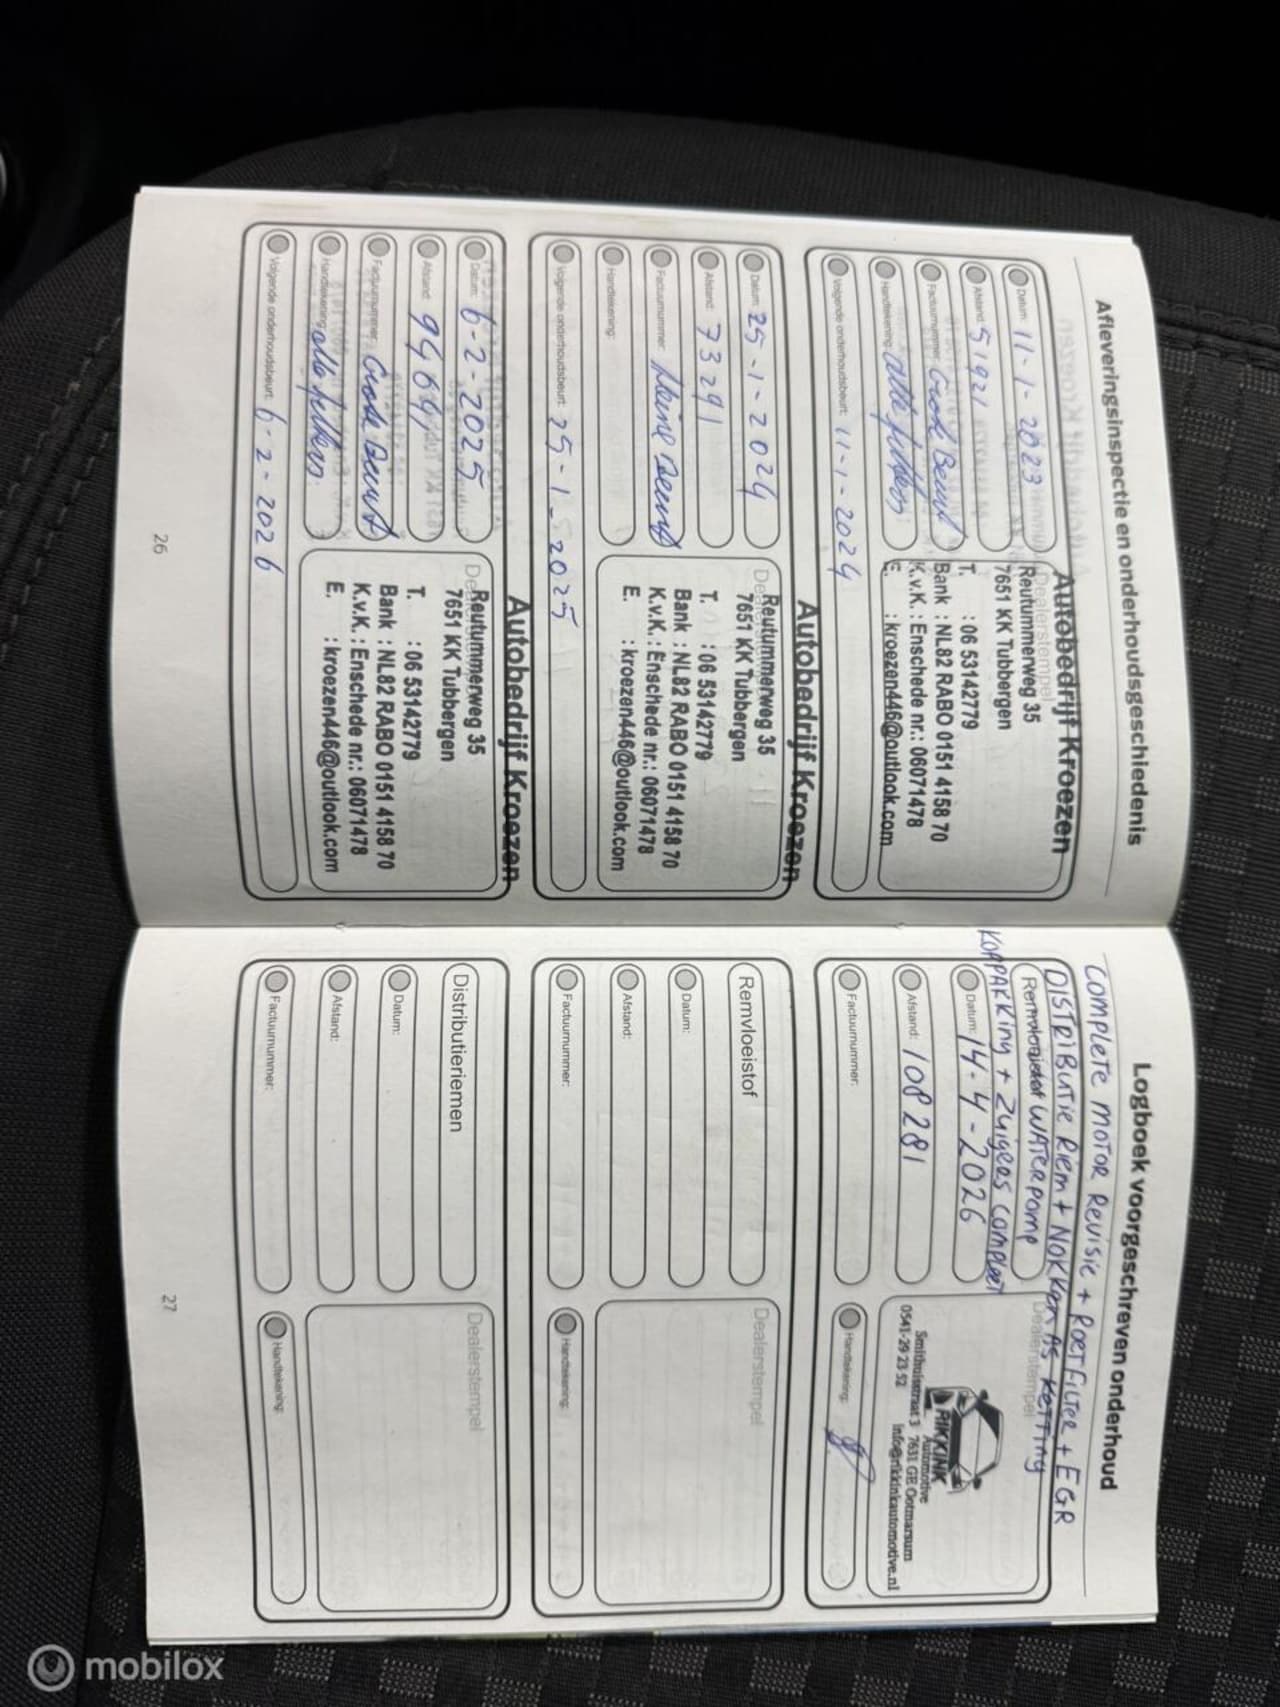 Afleveringsinspectie en onderhoudsgeschiedenis
Datum: 11-1-2023
Afstand: 51921
Factuurnummer: Grote Beurt
Handtekening: alle filters
Volgende onderhoudsbeurt: 11-1-2024
Dealerstempel
Autobedrijf Kroezen
Reutummerweg 35
7651 KK Tubbergen
T. : 06 53142779
Bank : NL82 RABO 0151 4158 70
K.v.K. : Enschede nr.: 06071478
E. : kroezen446@outlook.com
Datum: 25-1-2024
Afstand: 73291
Factuurnummer: kleine Beurt
Handtekening:
Volgende onderhoudsbeurt: 25-1-2025
Autobedrijf Kroezen
Reutummerweg 35
7651 KK Tubbergen
T. : 06 53142779
Bank : NL82 RABO 0151 4158 70
K.v.K. : Enschede nr.: 06071478
E. : kroezen446@outlook.com
Datum: 6-2-2025
Afstand:
Factuurnummer: Grote Beurt
Handtekening: alle filters
Volgende onderhoudsbeurt: 6-2-2026
Autobedrijf Kroezen
Reutummerweg 35
7651 KK Tubbergen
T. : 06 53142779
Bank : NL82 RABO 0151 4158 70
K.v.K. : Enschede nr.: 06071478
E. : kroezen446@outlook.com
26
Logboek voorgeschreven onderhoud
COMPLETE MOTOR REVISIE + ROETFILTER + EGR
DISTRIBUTIE RIEM + NOKKENAS KETTING
Remvloeistof WATERPOMP
KOPPAKKING + ZUIGERS COMPLEET
Datum: 14-4-2026
Afstand: 108281
Factuurnummer:
Handtekening:
Dealerstempel
RIKKINK
Automotive
Smithuisstraat 3 7631 GE Ootmarsum
0541-29 23 52 info@rikkinkautomotive.nl
Remvloeistof
Datum:
Afstand:
Factuurnummer:
Dealerstempel
Handtekening:
Distributieriemen
Datum:
Afstand:
Factuurnummer:
Dealerstempel
Handtekening:
27
mobilox